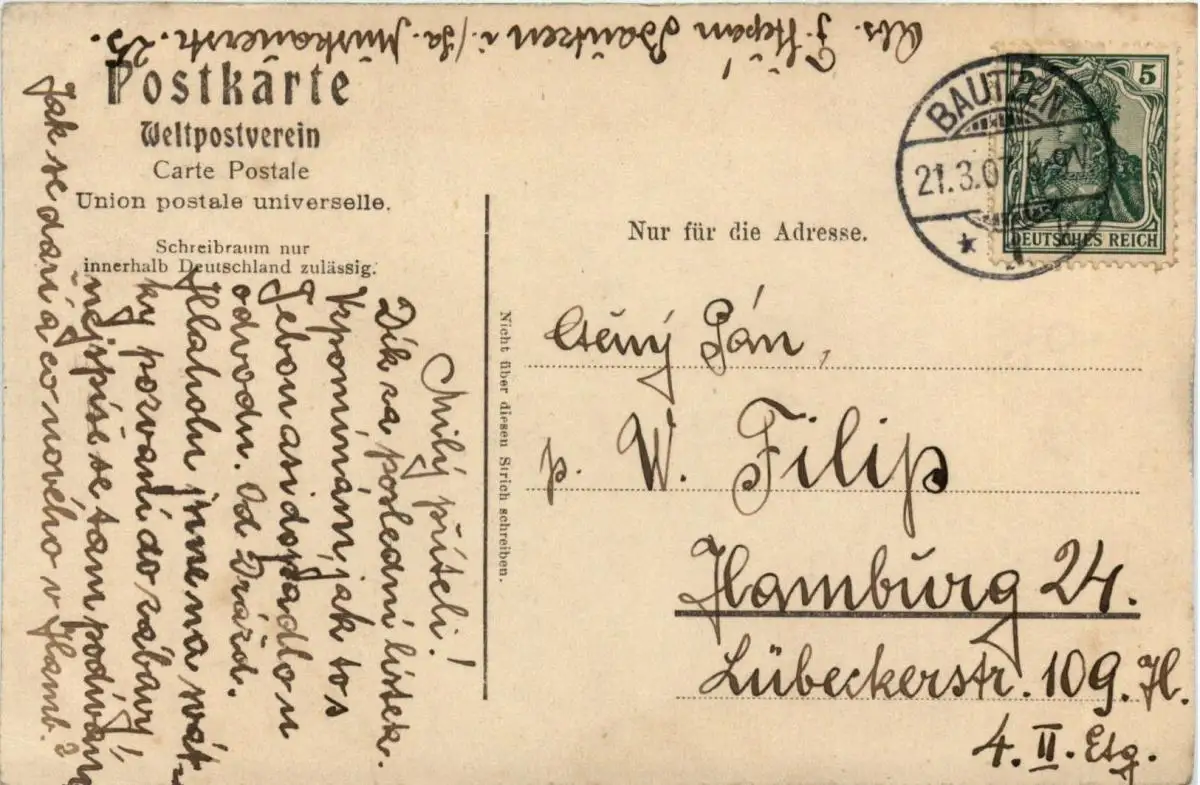 Abs. J. Štěpán Bautzen i/Sa. Muskauerstr. 25.
Postkarte
Weltpostverein
Carte Postale
Union postale universelle.
Schreibraum nur
innerhalb Deutschland zulässig.
Nur für die Adresse.
Nicht über diesen Strich schreiben.
BAUTZEN
21.3.07
5
5
DEUTSCHES REICH
Ctěný Pán,
p. W. Filip
Hamburg 24.
Lübeckerstr. 109. H.
4. II. Etg.
Milý příteli!
Dík za poslední lístek.
Vzpomínám, jak to s
Tebou asi dopadlo u
odvodu. Od Drážď.
Hlaholu jsme na svát-
ky pozvaní do zábavy,
nejspíše se tam podívám
Jak se daří a co nového v Hamb.?